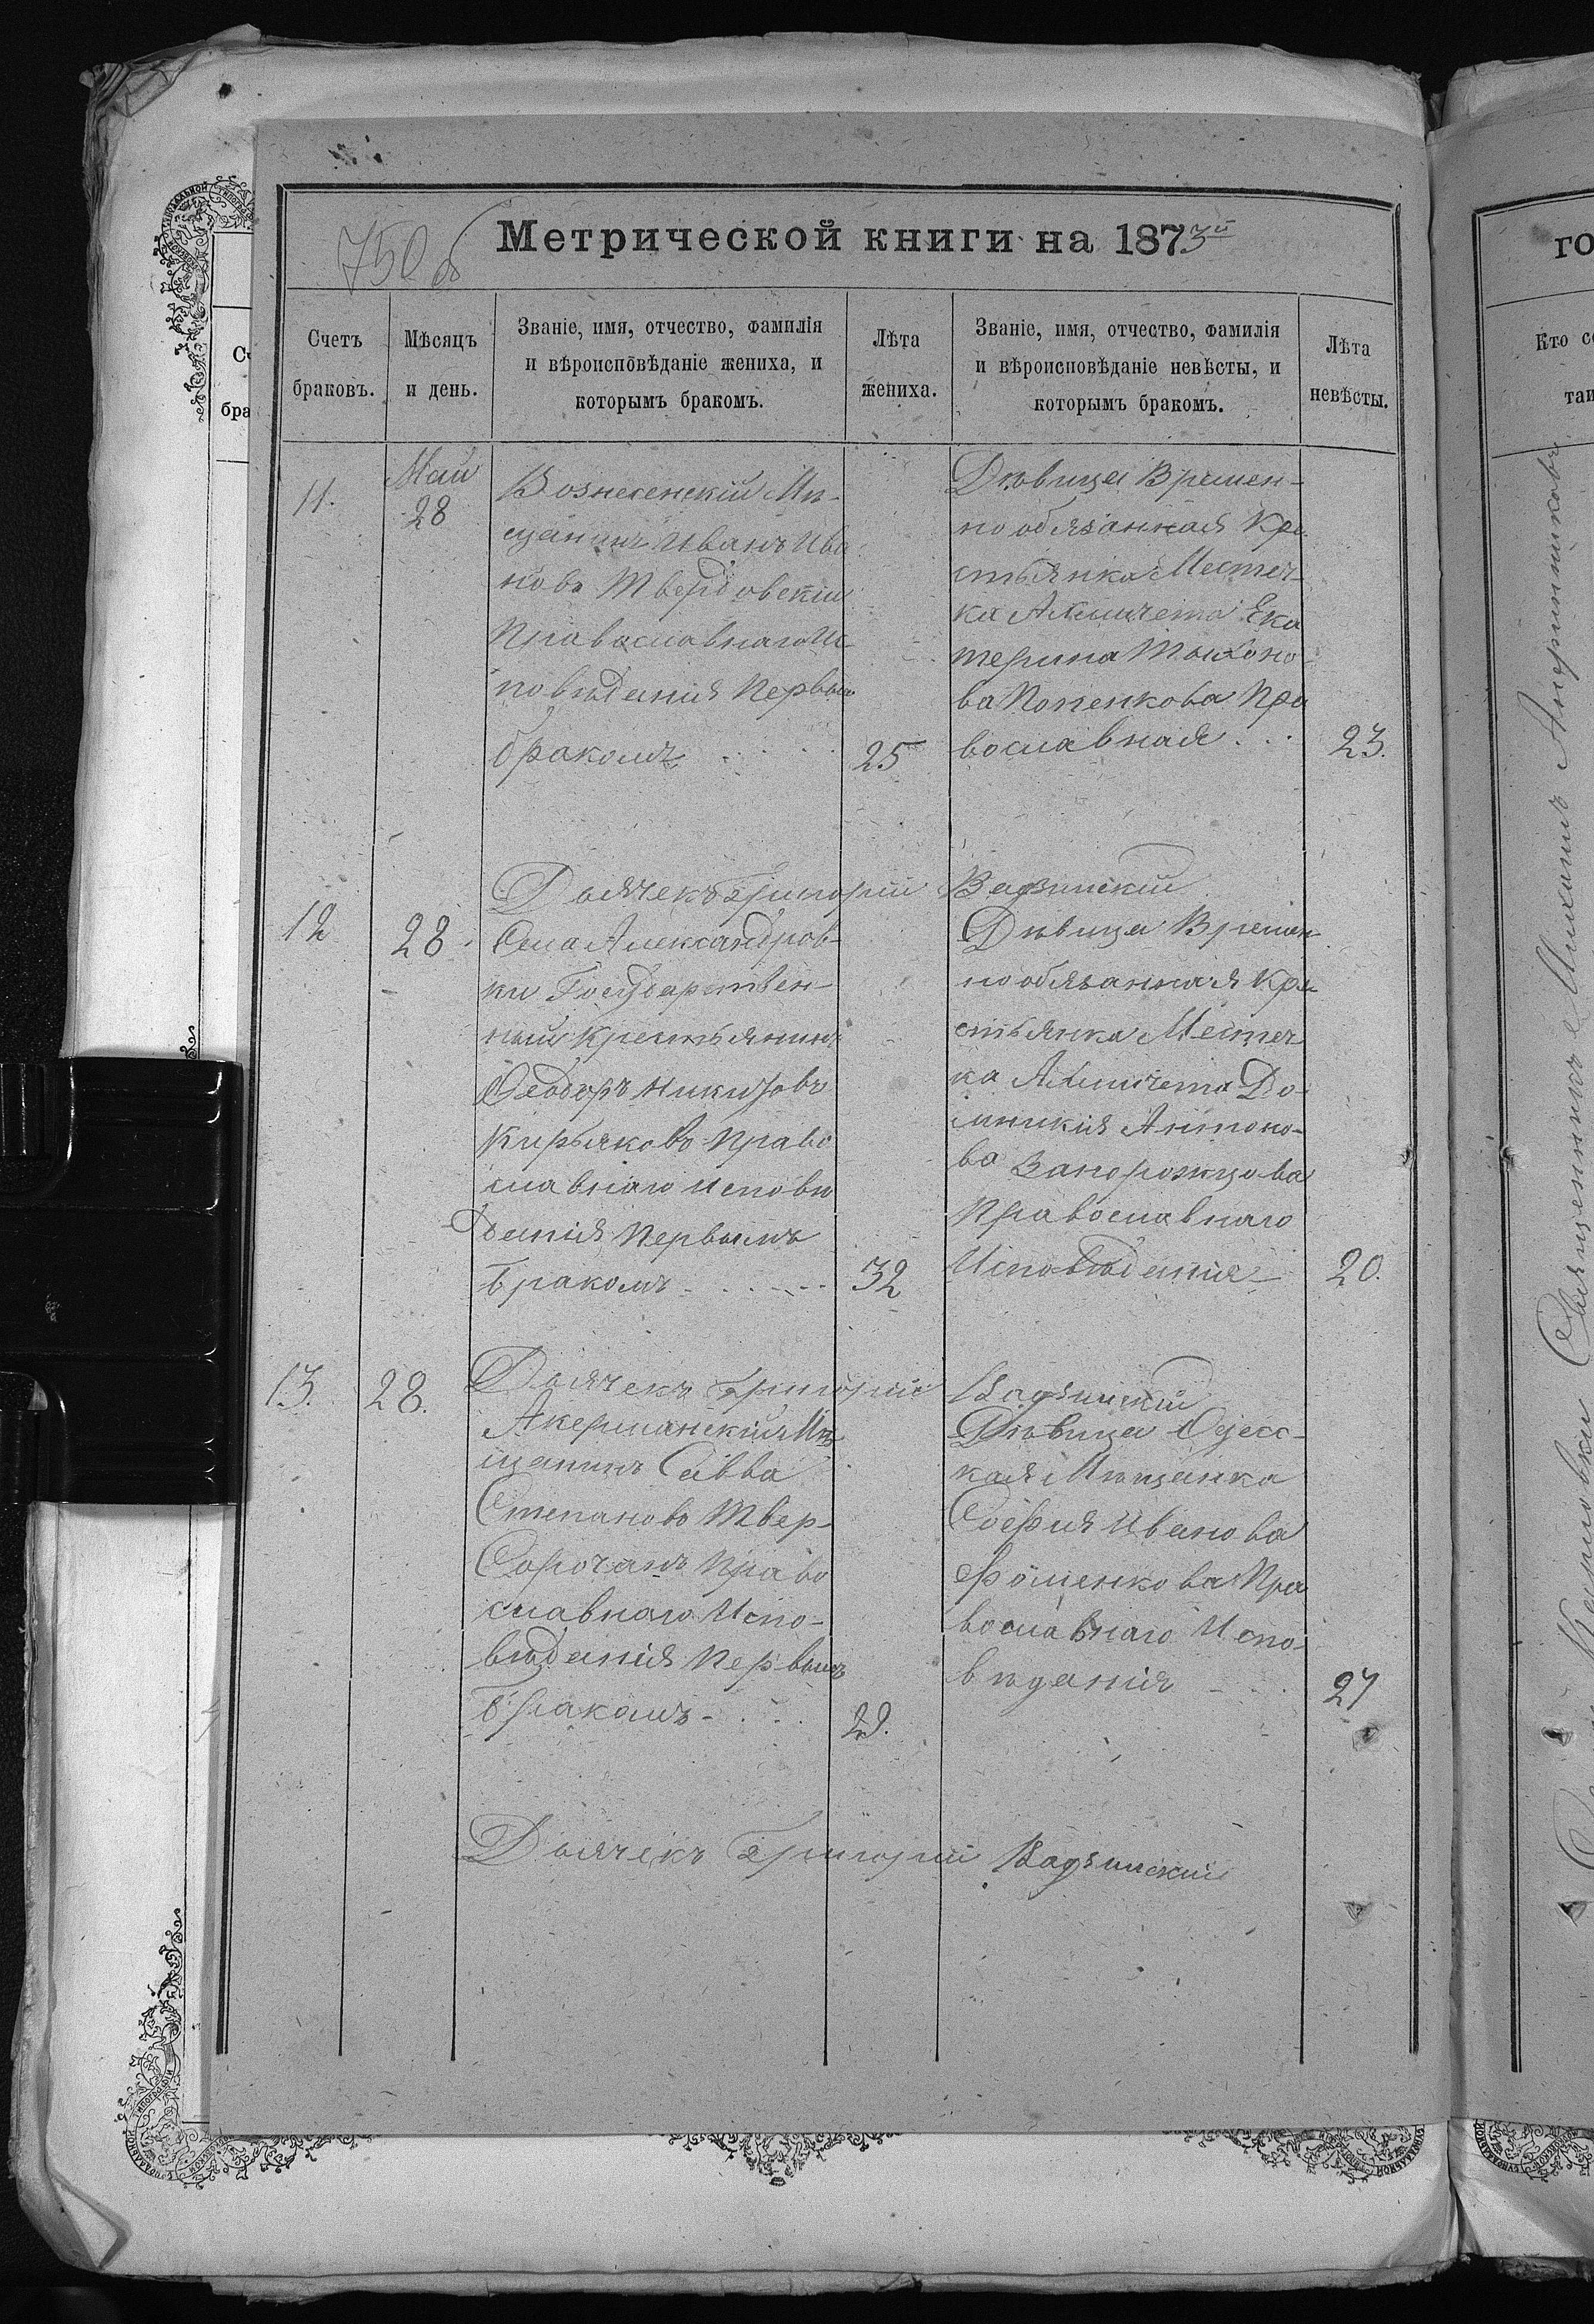 750 об
Метрической книги на 1873й
Счетъ
браковъ.
Мѣсяцъ
и день.
Званіе, имя, отчество, фамилія
и вѣроисповѣданіе жениха, и
которымъ бракомъ.
Лѣта
жениха.
Званіе, имя, отчество, фамилія
и вѣроисповѣданіе невѣсты, и
которымъ бракомъ.
Лѣта
невѣсты.
11.
Май
28
Вознесенскій Мѣ-
щанинъ Иванъ Ива
новъ Твердовскій
Православнаго Ис
повѣданія Первым
бракомъ
25
Дѣвица Времен-
но обязанная Кре
стьянка Местеч-
ка Ахмичета Ека
терина Тихоно-
ва Попенкова Пра
вославная
23.
Дьячекъ Григорій Вадзинскій
12
28.
Села Александров-
ки Государствен-
ный Крестьянинъ
Феодоръ Никитовъ
Кирьяковъ Право
славнаго Исповѣ
данія Первымъ
бракомъ
32
Дѣвица Времен-
но обязанная Кре
стьянка Местеч
ка Ахмичета До-
мникія Антоно-
ва Запорожцова
Православнаго
Исповѣданія
20.
Дьячекъ Григорій Вадзинскій
13.
28.
Акерманскій Мѣ
щанинъ Савва
Степановъ Твер-
Сорочанъ Право
славнаго Испо-
вѣданія Первымъ
Бракомъ
29.
Дѣвица Одесс-
кая Мѣщанка
Софія Иванова
Фоменкова Пра
вославнаго Испо-
вѣданія
27
Дьячекъ Григорій Вадзинскій
го
Кто со
таи
Сч
бра